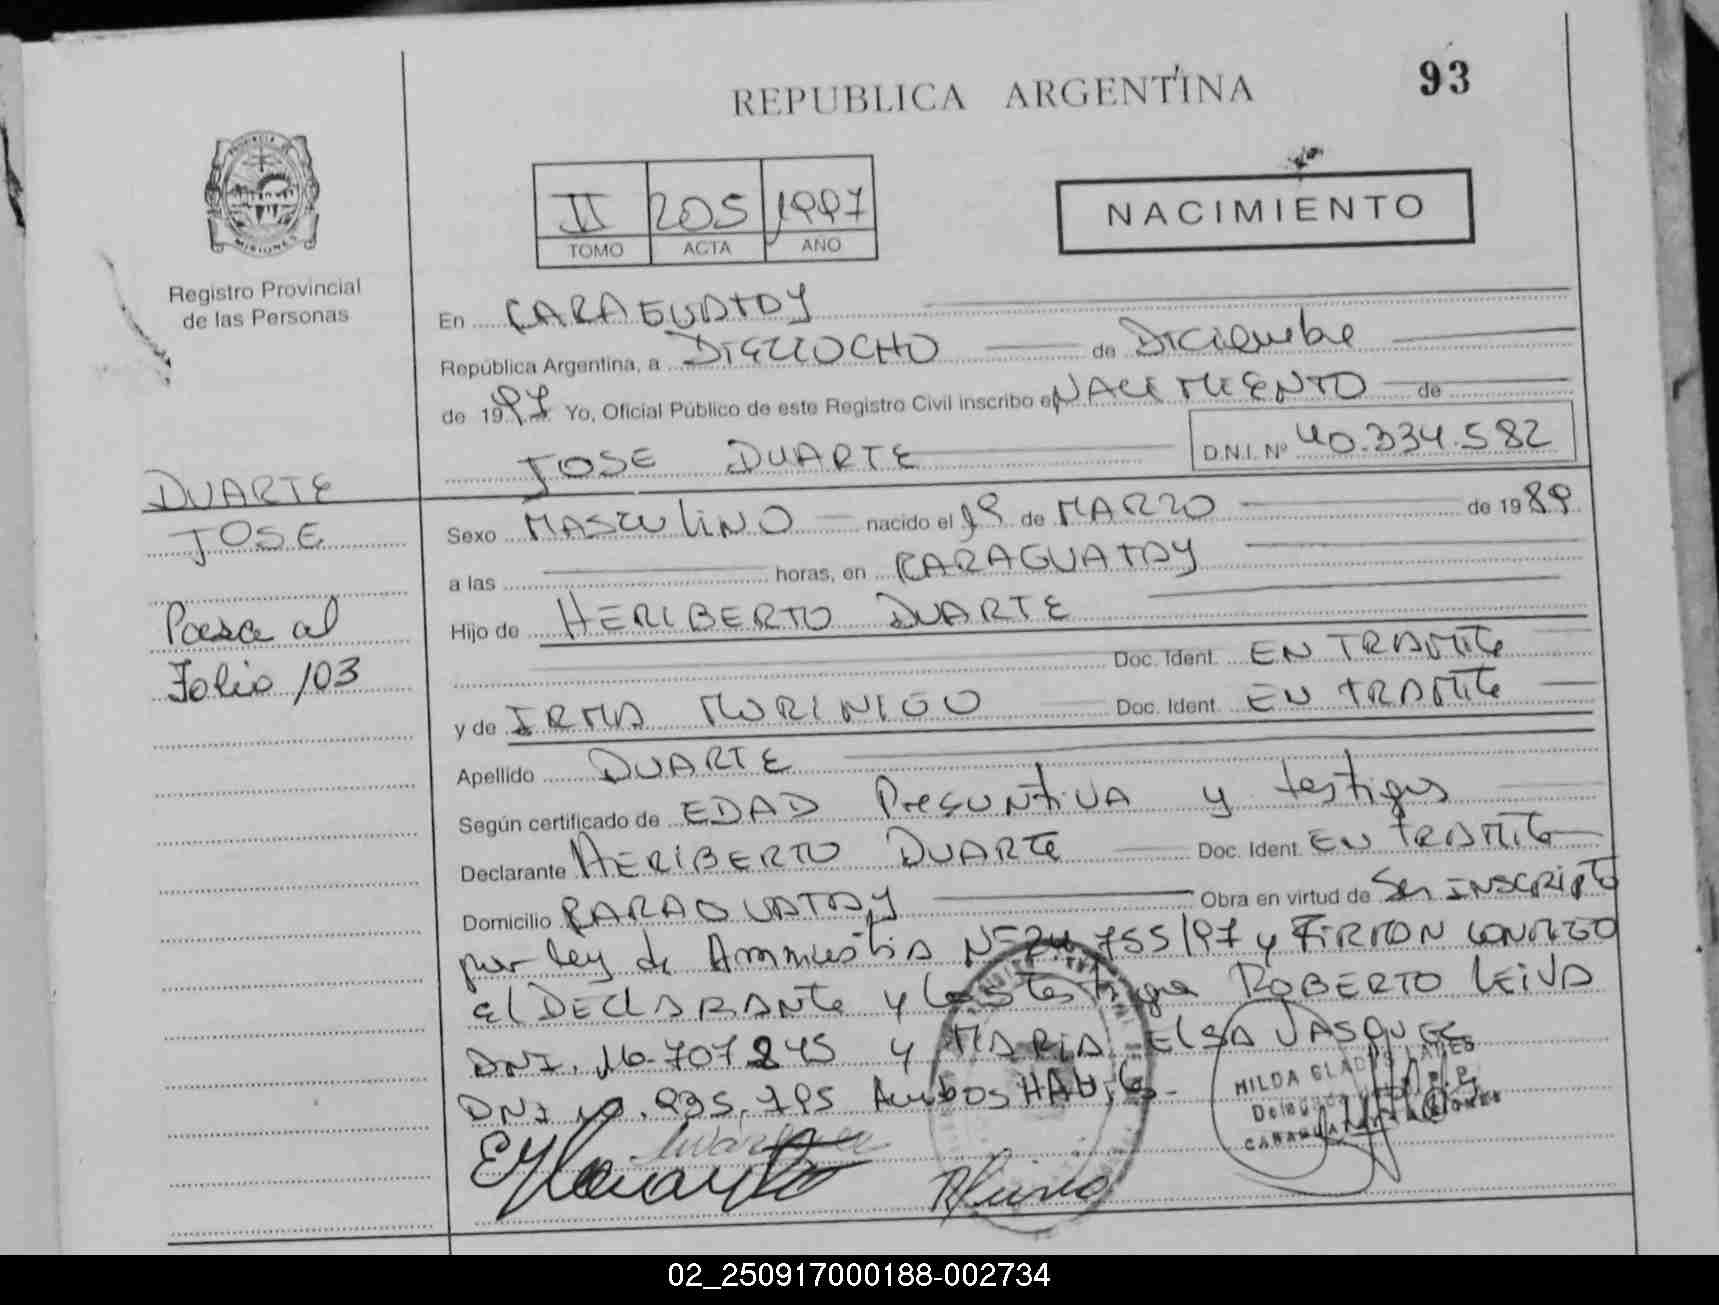 REPUBLICA ARGENTINA
93
PROVINCIA DE
MISIONES
Registro Provincial
de las Personas
II 205 1997
TOMO ACTA AÑO
NACIMIENTO
En CARAGUATAY
República Argentina, a DIECIOCHO de Diciembre
de 1997 Yo, Oficial Público de este Registro Civil inscribo el NACIMIENTO de
JOSE DUARTE D.N.I. Nº 40.334.582
DUARTE
JOSE
Pasa al
Folio 103
Sexo MASCULINO nacido el 19 de MARZO de 1989
a las horas, en CARAGUATAY
Hijo de HERIBERTO DUARTE
Doc. Ident. EN TRAMITE
y de IRMA MORINIGO Doc. Ident. EN TRAMITE
Apellido DUARTE
Según certificado de EDAD PresuNtiVA y testigos
Declarante HERIBERTO DUARTE Doc. Ident. EN TRAMITE
Domicilio CARAGUATAY Obra en virtud de Ser INSCRIPTO
por ley de Ammistia Nº 24.755/97 y FIRMAN CONMIGO
el DEClARANte y los testigos ROBERTO LEIVA
DNI. 16.707.245 y MARIA ELSA VASQUES
DNI .935.795 Ambos HABiles-
HILDA GLADYS
Delegada R.P.P.
CARAGUATAY MISIONES
RLeiva
02_250917000188-002734